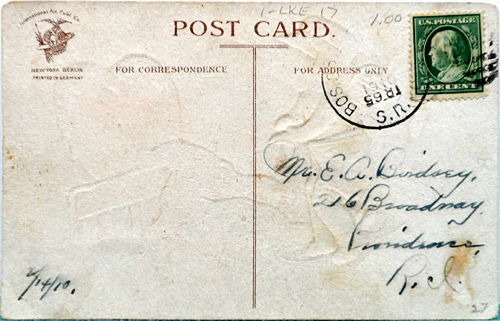 1-LKE 17
1.00
POST CARD.
International Art Publ. Co.
NEW YORK BERLIN
PRINTED IN GERMANY
FOR CORRESPONDENCE
FOR ADDRESS ONLY
U.S. POSTAGE
ONE CENT
BOS
S.U.
Mr. E. A. Birdsey,
216 Broadway
Providence,
R.I.
2/14/10.
27